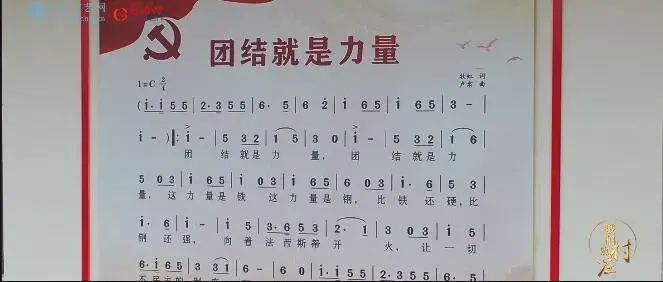 团结就是力量
1=C 2/4
牧虹 词
卢肃 曲
(i·i 5 5 | 2·3 5 5 | 6· 5 | 6 2 | i 6 5 | i 6 5 | 3 - |
i - ):‖ i - | 5 3 2 | 1 5 | 3 0 | i - | 5 3 2 | 1 6 |
团 结就是 力 量, 团 结就是 力
5 0 3 | i 6 5 | i 0 3 | i 6 5 | i 0 3 | i· 6 | 5 0 3 |
量,这 力量是 铁 这 力量是 钢,比 铁 还 硬,比
i· 6 | i - | i 5 | 3·6 5 3 | 2· 1 | 3 0 3 | i 5 |
钢 还 强, 向着 法西斯蒂 开 火,让 一切